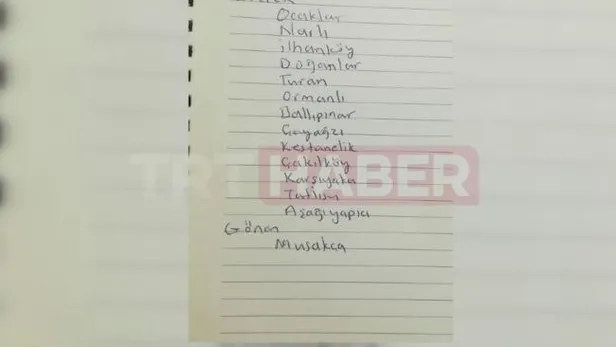 Ocaklar
Narlı
ilhanköy
Doğanlar
Turan
Ormanlı
Ballıpınar
Çayağzı
Kestanelik
Çakılköy
Karşıyaka
Tatlısu
Aşağıyapıcı
Gönen
Musakça
TRT HABER